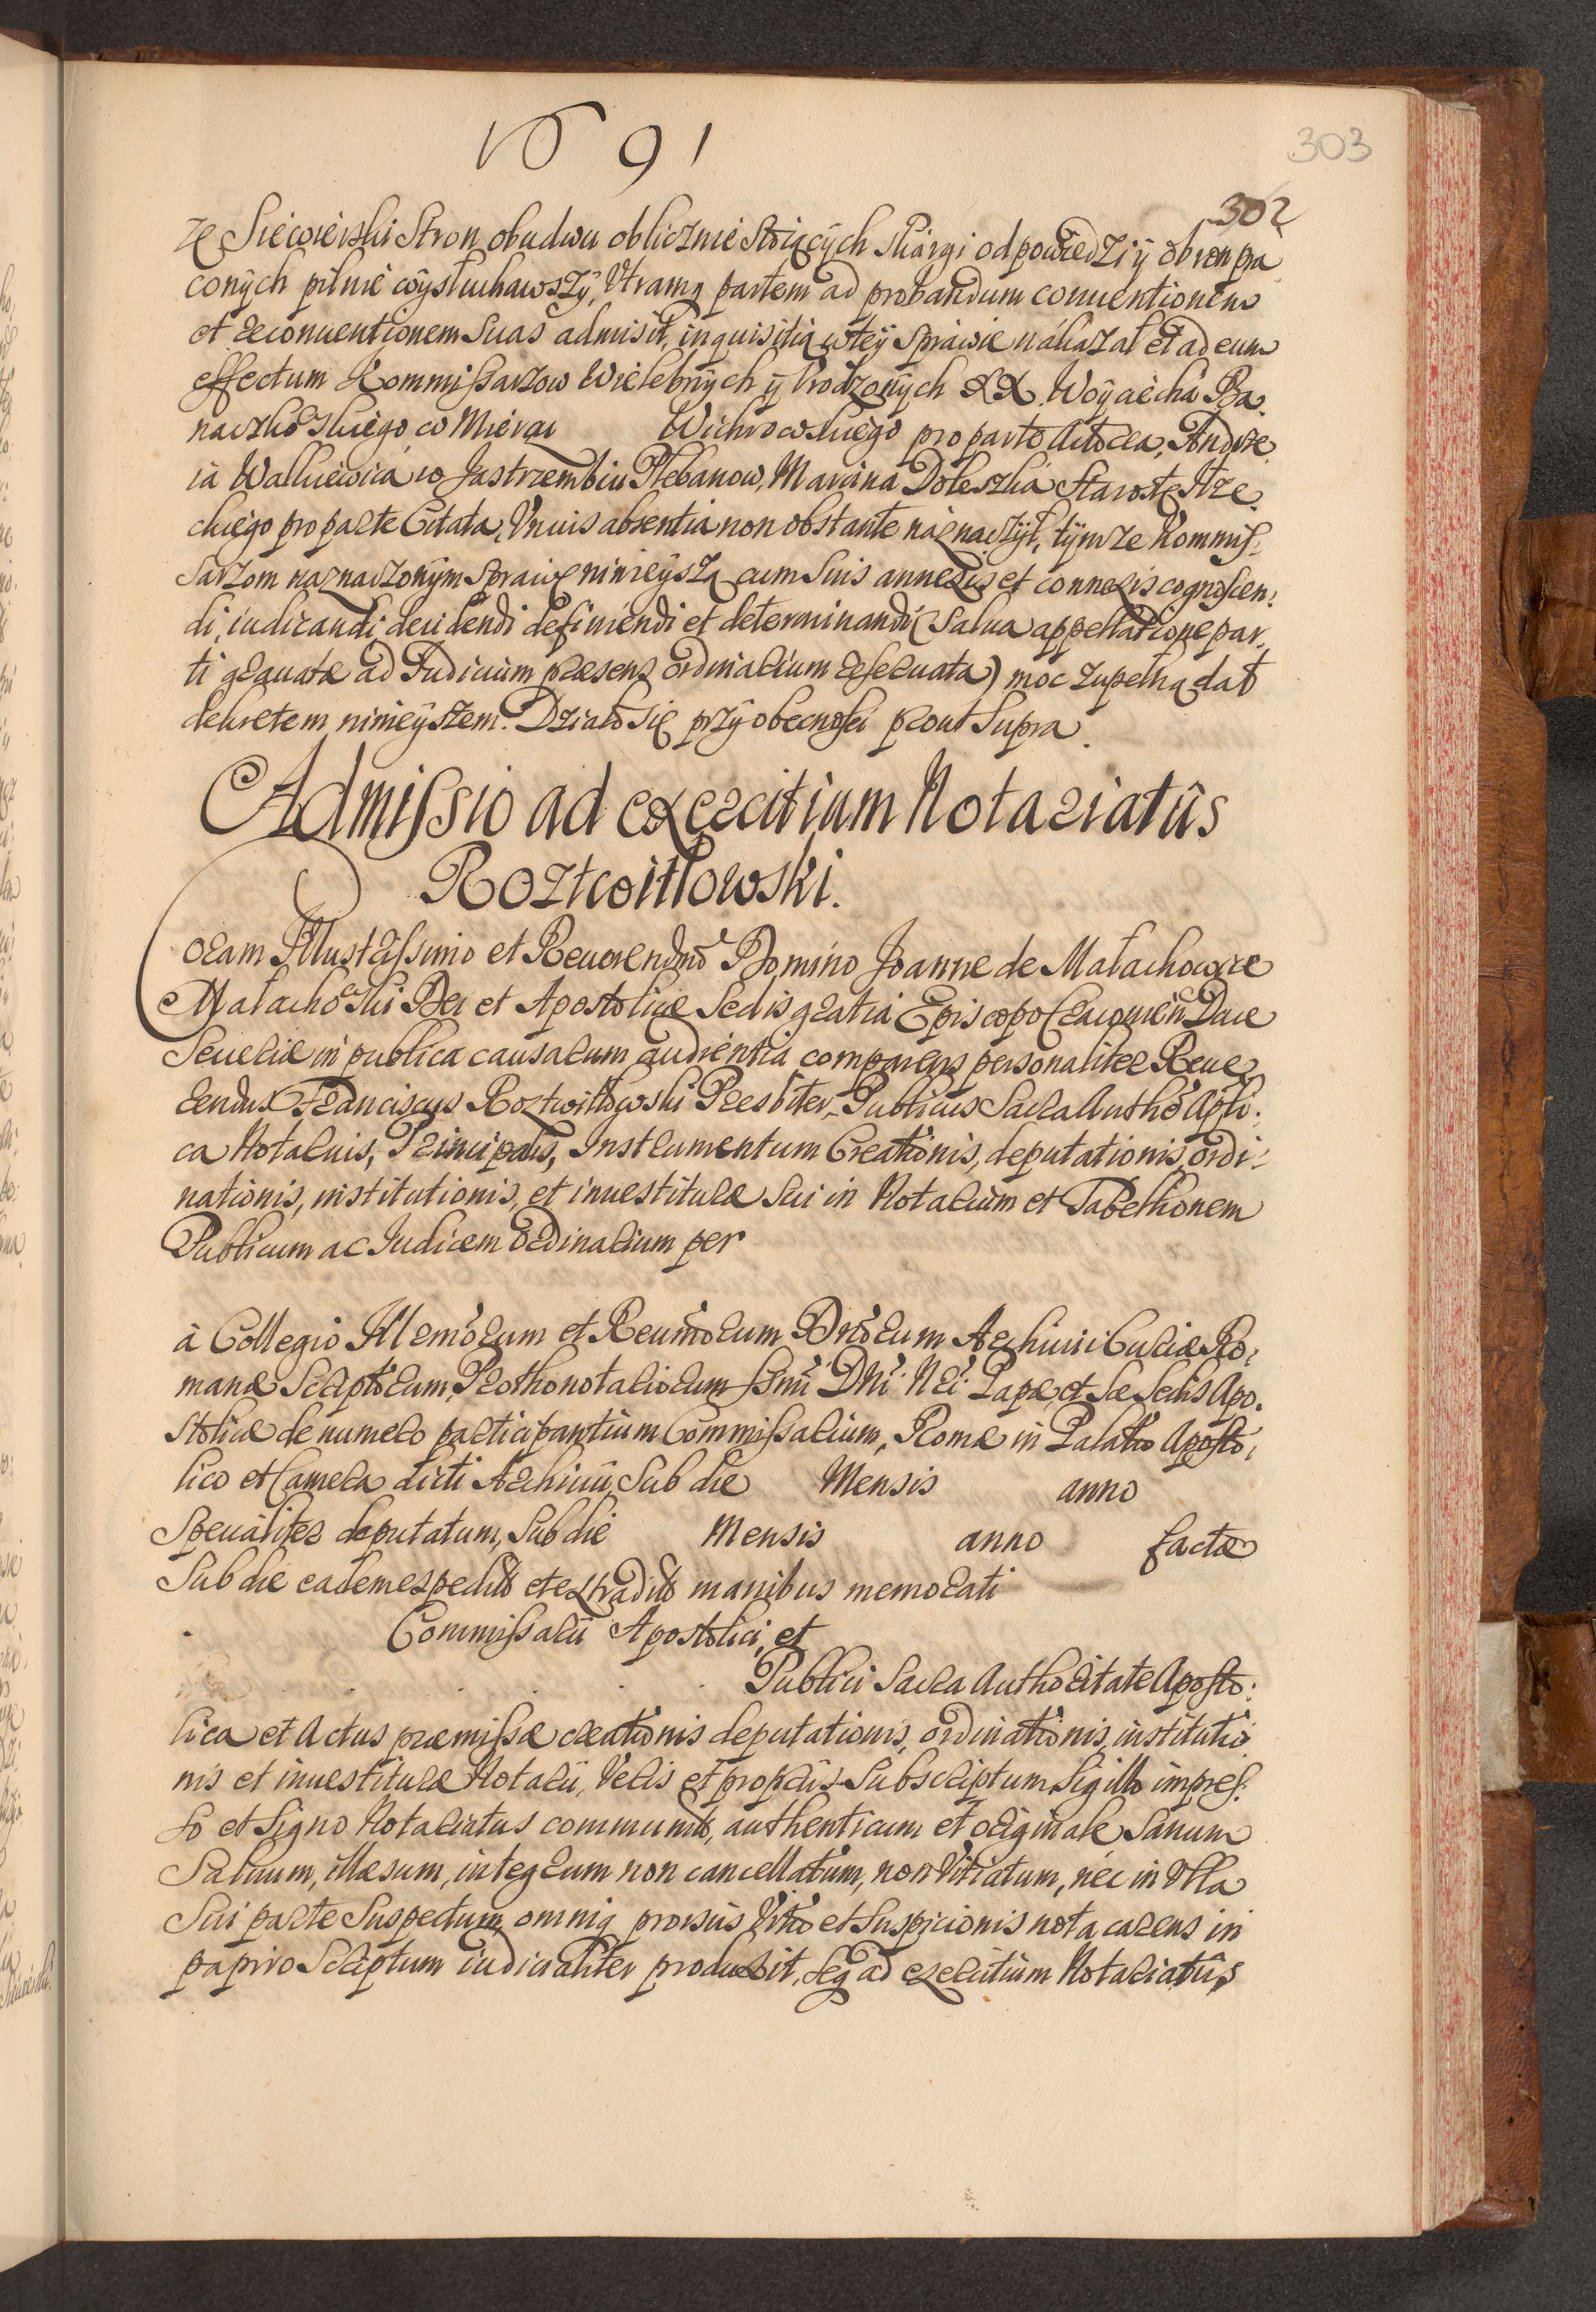 1691
303
302
że Siewierski Stron obudwu oblicznie Stoiących skargi odpowiedzi ÿ obron pra
conÿch pilnie wÿsłuchawszÿ, Vtramq partem ad probandum conuentionem
et reconuentionem Suas admisit, inquisitią wteÿ Sprawie nákazał et ad eum
effectum Kommissarzow Wielebnÿch ÿ Vrodzonÿch XX. Woÿciecha Ba
naczkoskiego w Mierzę Wichrowskiego pro parte Actorea, Andrze
ia Walkiewica w Jastrzembiu Plebanow, Marcina Doleszka Starostę Rze
ckiego pro parte Citata, Vnius absentia non obstante naznaczÿł, tÿmże Kommis:
sarzom naznaczonÿm Sprawę ninieÿszą cum suis annexis et connexis cognoscen:
di, iudicandi, decidendi definiendi et determinandi (salua appellatione par,
ti grauatæ ad Judicium præsens ordinarium reseruata) moc zupełną dał
dekretem ninieÿszem. Działo się przÿ obecnosci prout supra.
Admissio ad exercitium Notariatûs
Roztwitłowski.
Coram Illustrissimo et Reuerendmo Domino Joanne de Małachowice
Małachoski Dei et Apostolicæ Sedis gratia Episcopo Cracouien Duce
Seueriæ in publica causarum audientia comparens personaliter Reue
rendus Franciscus Roztwittowski Presbiter, Publicus Sacra Autho Apli:
ca Notarius, Principalis, Instrumentum Creationis, deputationis, ordi:
nationis, institutionis, et inuestituræ sui in Notarium et Tabellionem
Publicum ac Iudicem Ordinarium per
à Collegio Illrmorum et Reumorum Dnorum Archiuii Curiæ Ro:
manæ Scriptorum, Prothonotariorum Ssmi Dni Nri Papæ, et Sæ Sedis Apo.
stolicæ de numero participantium Commissarium, Romæ in Palatio Aposto:
lico et Camera dicti Archiuii, Sub die Mensis anno
Specialiter deputatum, Sub die Mensis anno factæ
Sub die eadem expedito et extradito manibus memorati
Commissarii Apostolici, et
Publici Sacra Authoritate Aposto:
lica et Actus præmissæ creationis deputationis, ordinationis, institutio
nis et inuestituræ Notarii, Veris et propriis Subscriptum, Sigillo impres:
so et Signo Notariatus communito, authenticum et originale Sanum
Saluum, illæsum, integrum non cancellatum, non Vitiatum, nec in Vlla
Sui parte Suspectum, omniq prorsus Vitio et Suspicionis nota carens in
papiro Scriptum iudicialiter produxit, seq ad exercitium Notariatûs